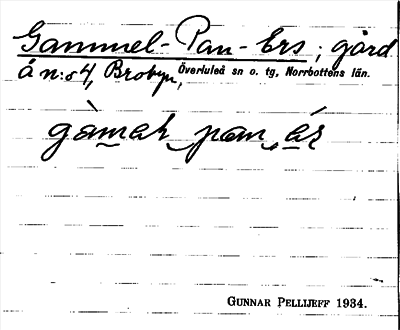 Gammel-Pan-Ers; gård
å n:o 4, Brobyn, Överluleå sn o. tg, Norrbottens län.
gàmak pan ás
GUNNAR PELLIJEFF 1934.